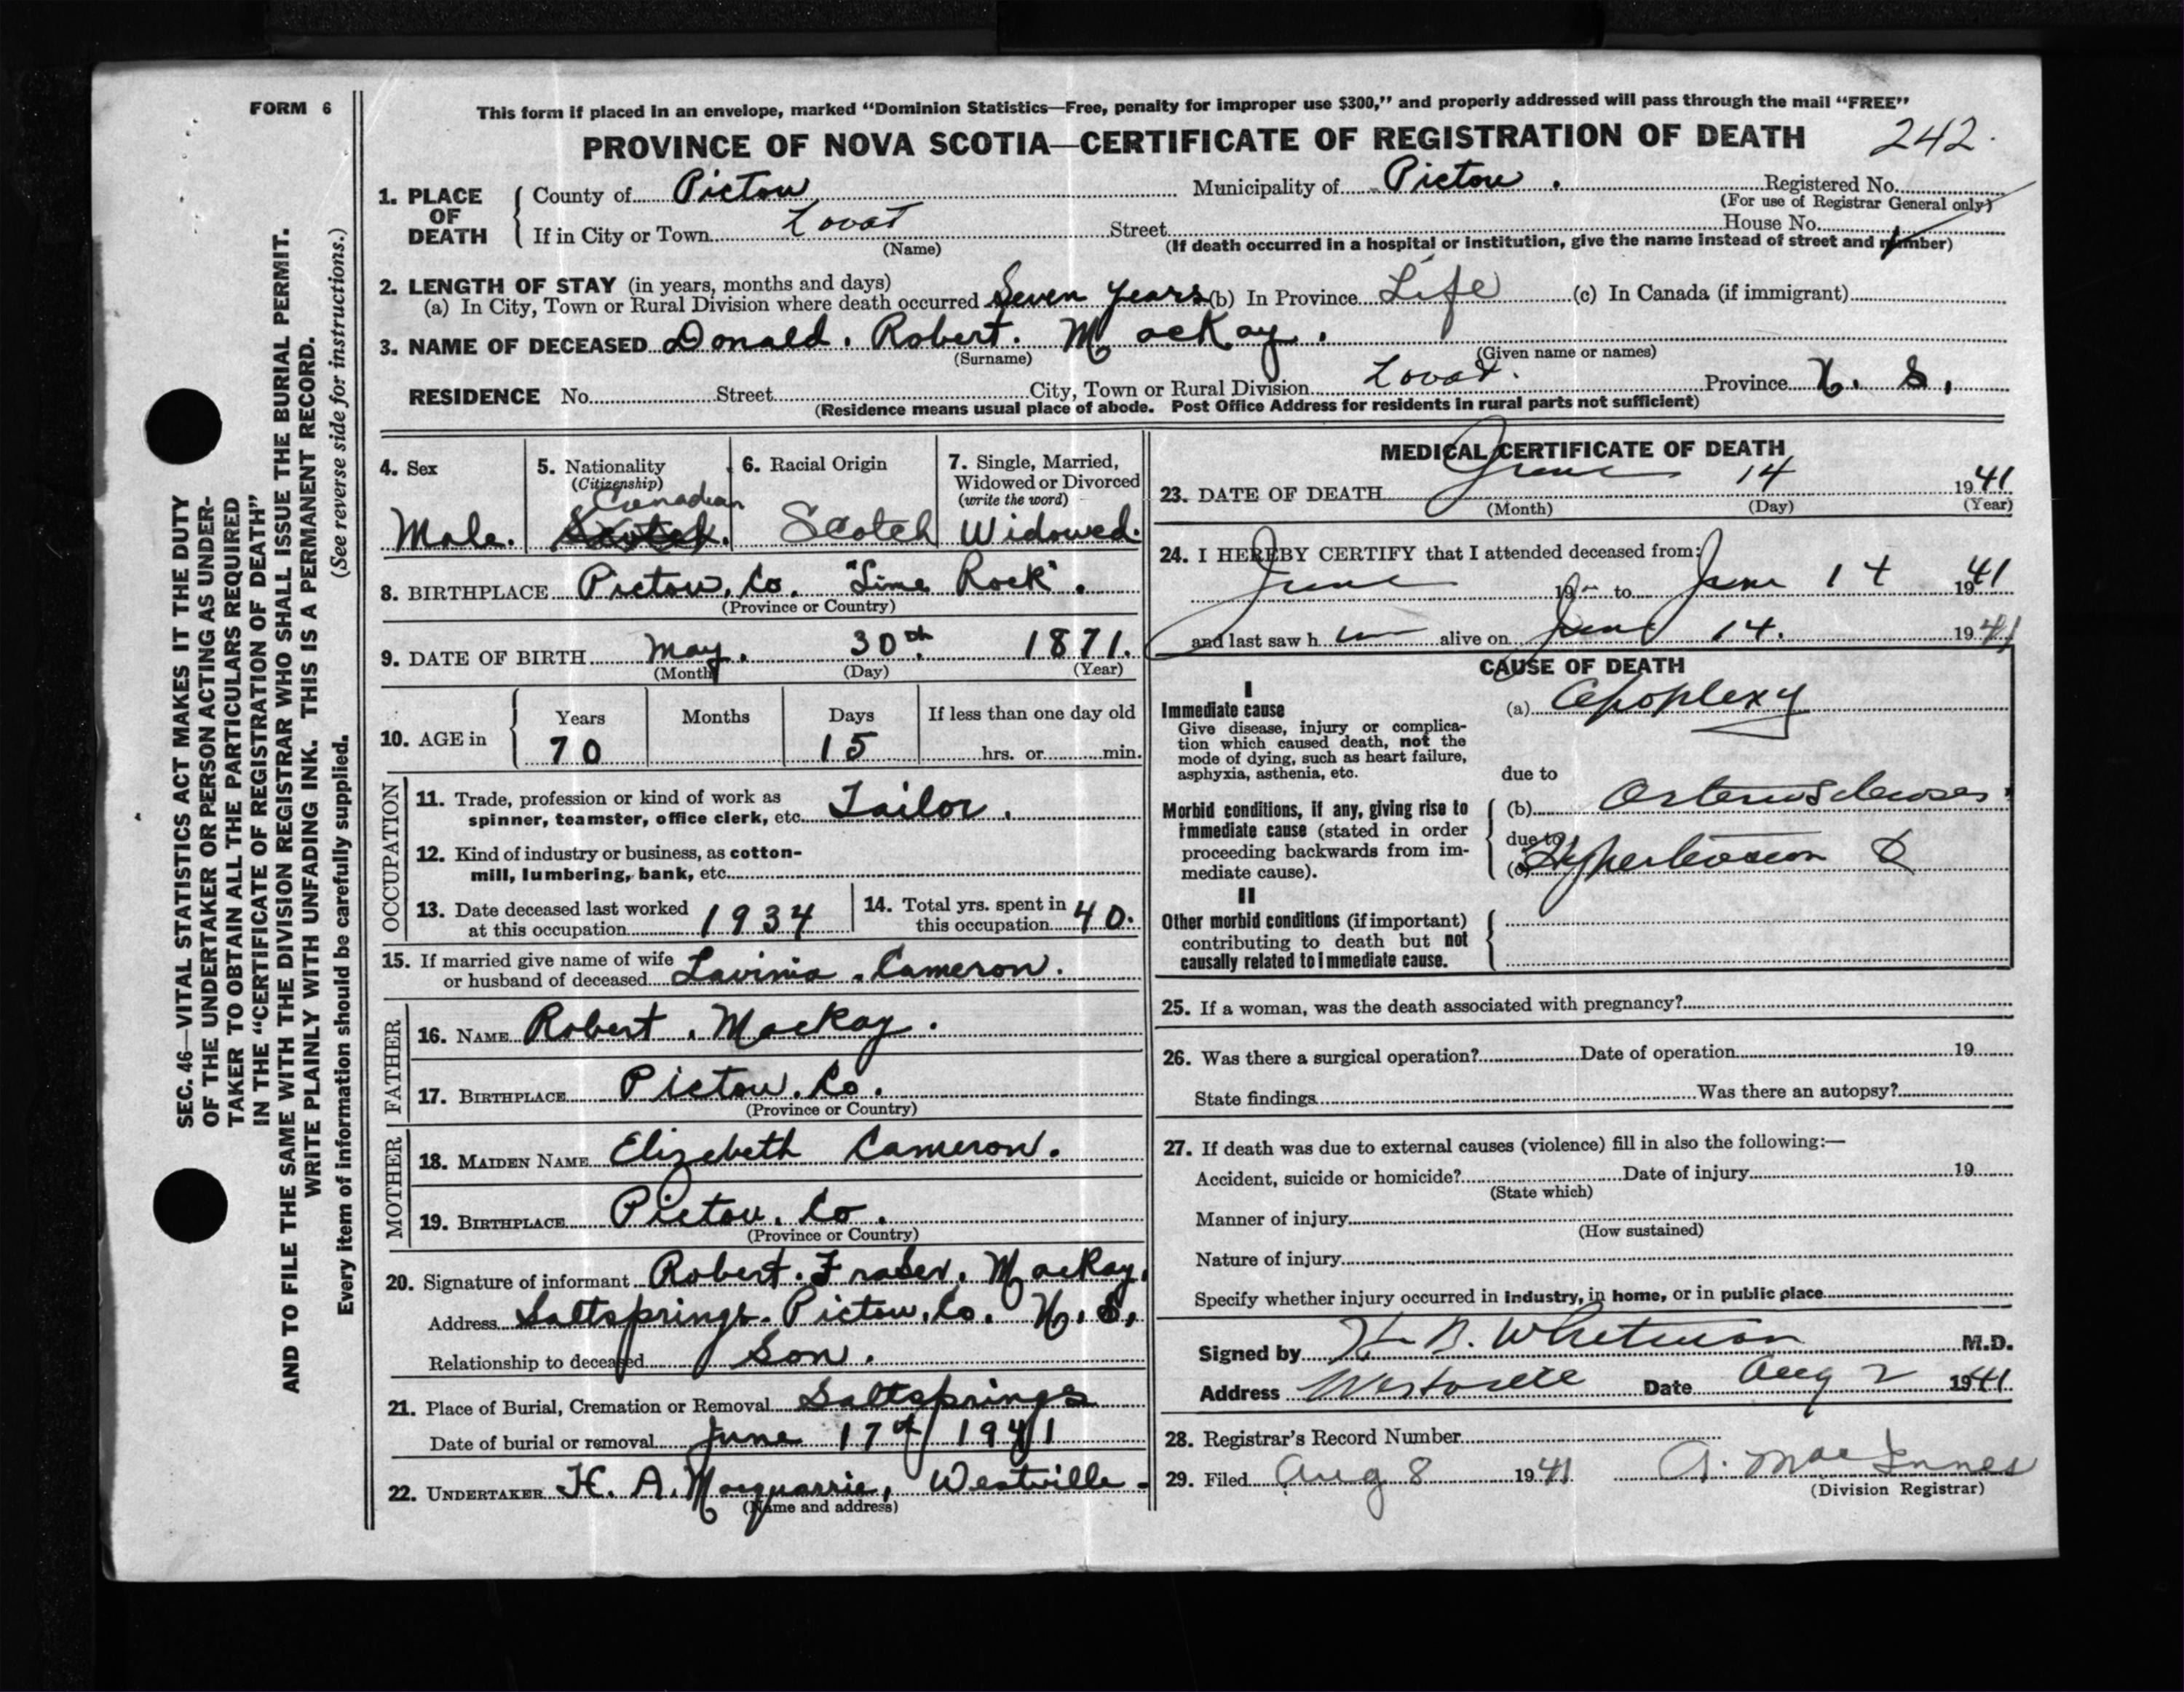 FORM 6
This form if placed in an envelope, marked “Dominion Statistics—Free, penalty for improper use $300,” and properly addressed will pass through the mail “FREE”
PROVINCE OF NOVA SCOTIA—CERTIFICATE OF REGISTRATION OF DEATH 242.
1. PLACE OF DEATH
County of Pictou Municipality of Pictou. Registered No.
(For use of Registrar General only)
If in City or Town Lovat Street House No.
(Name) (If death occurred in a hospital or institution, give the name instead of street and number)
2. LENGTH OF STAY (in years, months and days)
(a) In City, Town or Rural Division where death occurred Seven years (b) In Province Life (c) In Canada (if immigrant)
3. NAME OF DECEASED Donald. Robert. MacKay.
(Surname) (Given name or names)
RESIDENCE No. Street City, Town or Rural Division Lovat. Province N. S.
(Residence means usual place of abode. Post Office Address for residents in rural parts not sufficient)
4. Sex
Male.
5. Nationality
(Citizenship)
Canadian
Scotch.
6. Racial Origin
Scotch
7. Single, Married,
Widowed or Divorced
(write the word)
Widowed.
8. BIRTHPLACE Pictou. Co. "Lime Rock".
(Province or Country)
9. DATE OF BIRTH May. 30th. 1871.
(Month) (Day) (Year)
10. AGE in
Years Months Days If less than one day old
70 15 hrs. or min.
OCCUPATION
11. Trade, profession or kind of work as
spinner, teamster, office clerk, etc. Tailor.
12. Kind of industry or business, as cotton-
mill, lumbering, bank, etc.
13. Date deceased last worked
at this occupation 1934
14. Total yrs. spent in
this occupation 40.
15. If married give name of wife
or husband of deceased Lavinia. Cameron.
FATHER
16. NAME Robert. MacKay.
17. BIRTHPLACE Pictou. Co.
(Province or Country)
MOTHER
18. MAIDEN NAME Elizebeth Cameron.
19. BIRTHPLACE Pictou. Co.
(Province or Country)
20. Signature of informant Robert. Fraser. MacKay.
Address Saltsprings. Pictou. Co. N. S.
Relationship to deceased Son.
21. Place of Burial, Cremation or Removal Saltsprings
Date of burial or removal June 17th/1941
22. UNDERTAKER H. A. Macquarrie, Westville.
(Name and address)
MEDICAL CERTIFICATE OF DEATH
23. DATE OF DEATH June 14 1941
(Month) (Day) (Year)
24. I HEREBY CERTIFY that I attended deceased from:
June 19 to June 14 1941
and last saw h im alive on June 14. 1941
CAUSE OF DEATH
I
Immediate cause
Give disease, injury or complica-
tion which caused death, not the
mode of dying, such as heart failure,
asphyxia, asthenia, etc.
(a) Apoplexy
due to
Morbid conditions, if any, giving rise to
immediate cause (stated in order
proceeding backwards from im-
mediate cause).
(b) Arteriosclerosis
due to
(c) Hypertension
II
Other morbid conditions (if important)
contributing to death but not
causally related to immediate cause.
25. If a woman, was the death associated with pregnancy?
26. Was there a surgical operation? Date of operation 19
State findings Was there an autopsy?
27. If death was due to external causes (violence) fill in also the following:—
Accident, suicide or homicide? Date of injury 19
(State which)
Manner of injury
(How sustained)
Nature of injury
Specify whether injury occurred in industry, in home, or in public place
Signed by H. B. Whitman M.D.
Address Westville Date Aug 2 1941
28. Registrar's Record Number
29. Filed Aug 8 1941 A. MacInnes
(Division Registrar)
SEC. 46—VITAL STATISTICS ACT MAKES IT THE DUTY
OF THE UNDERTAKER OR PERSON ACTING AS UNDER-
TAKER TO OBTAIN ALL THE PARTICULARS REQUIRED
IN THE “CERTIFICATE OF REGISTRATION OF DEATH”
AND TO FILE THE SAME WITH THE DIVISION REGISTRAR WHO SHALL ISSUE THE BURIAL PERMIT.
WRITE PLAINLY WITH UNFADING INK. THIS IS A PERMANENT RECORD.
Every item of information should be carefully supplied. (See reverse side for instructions.)